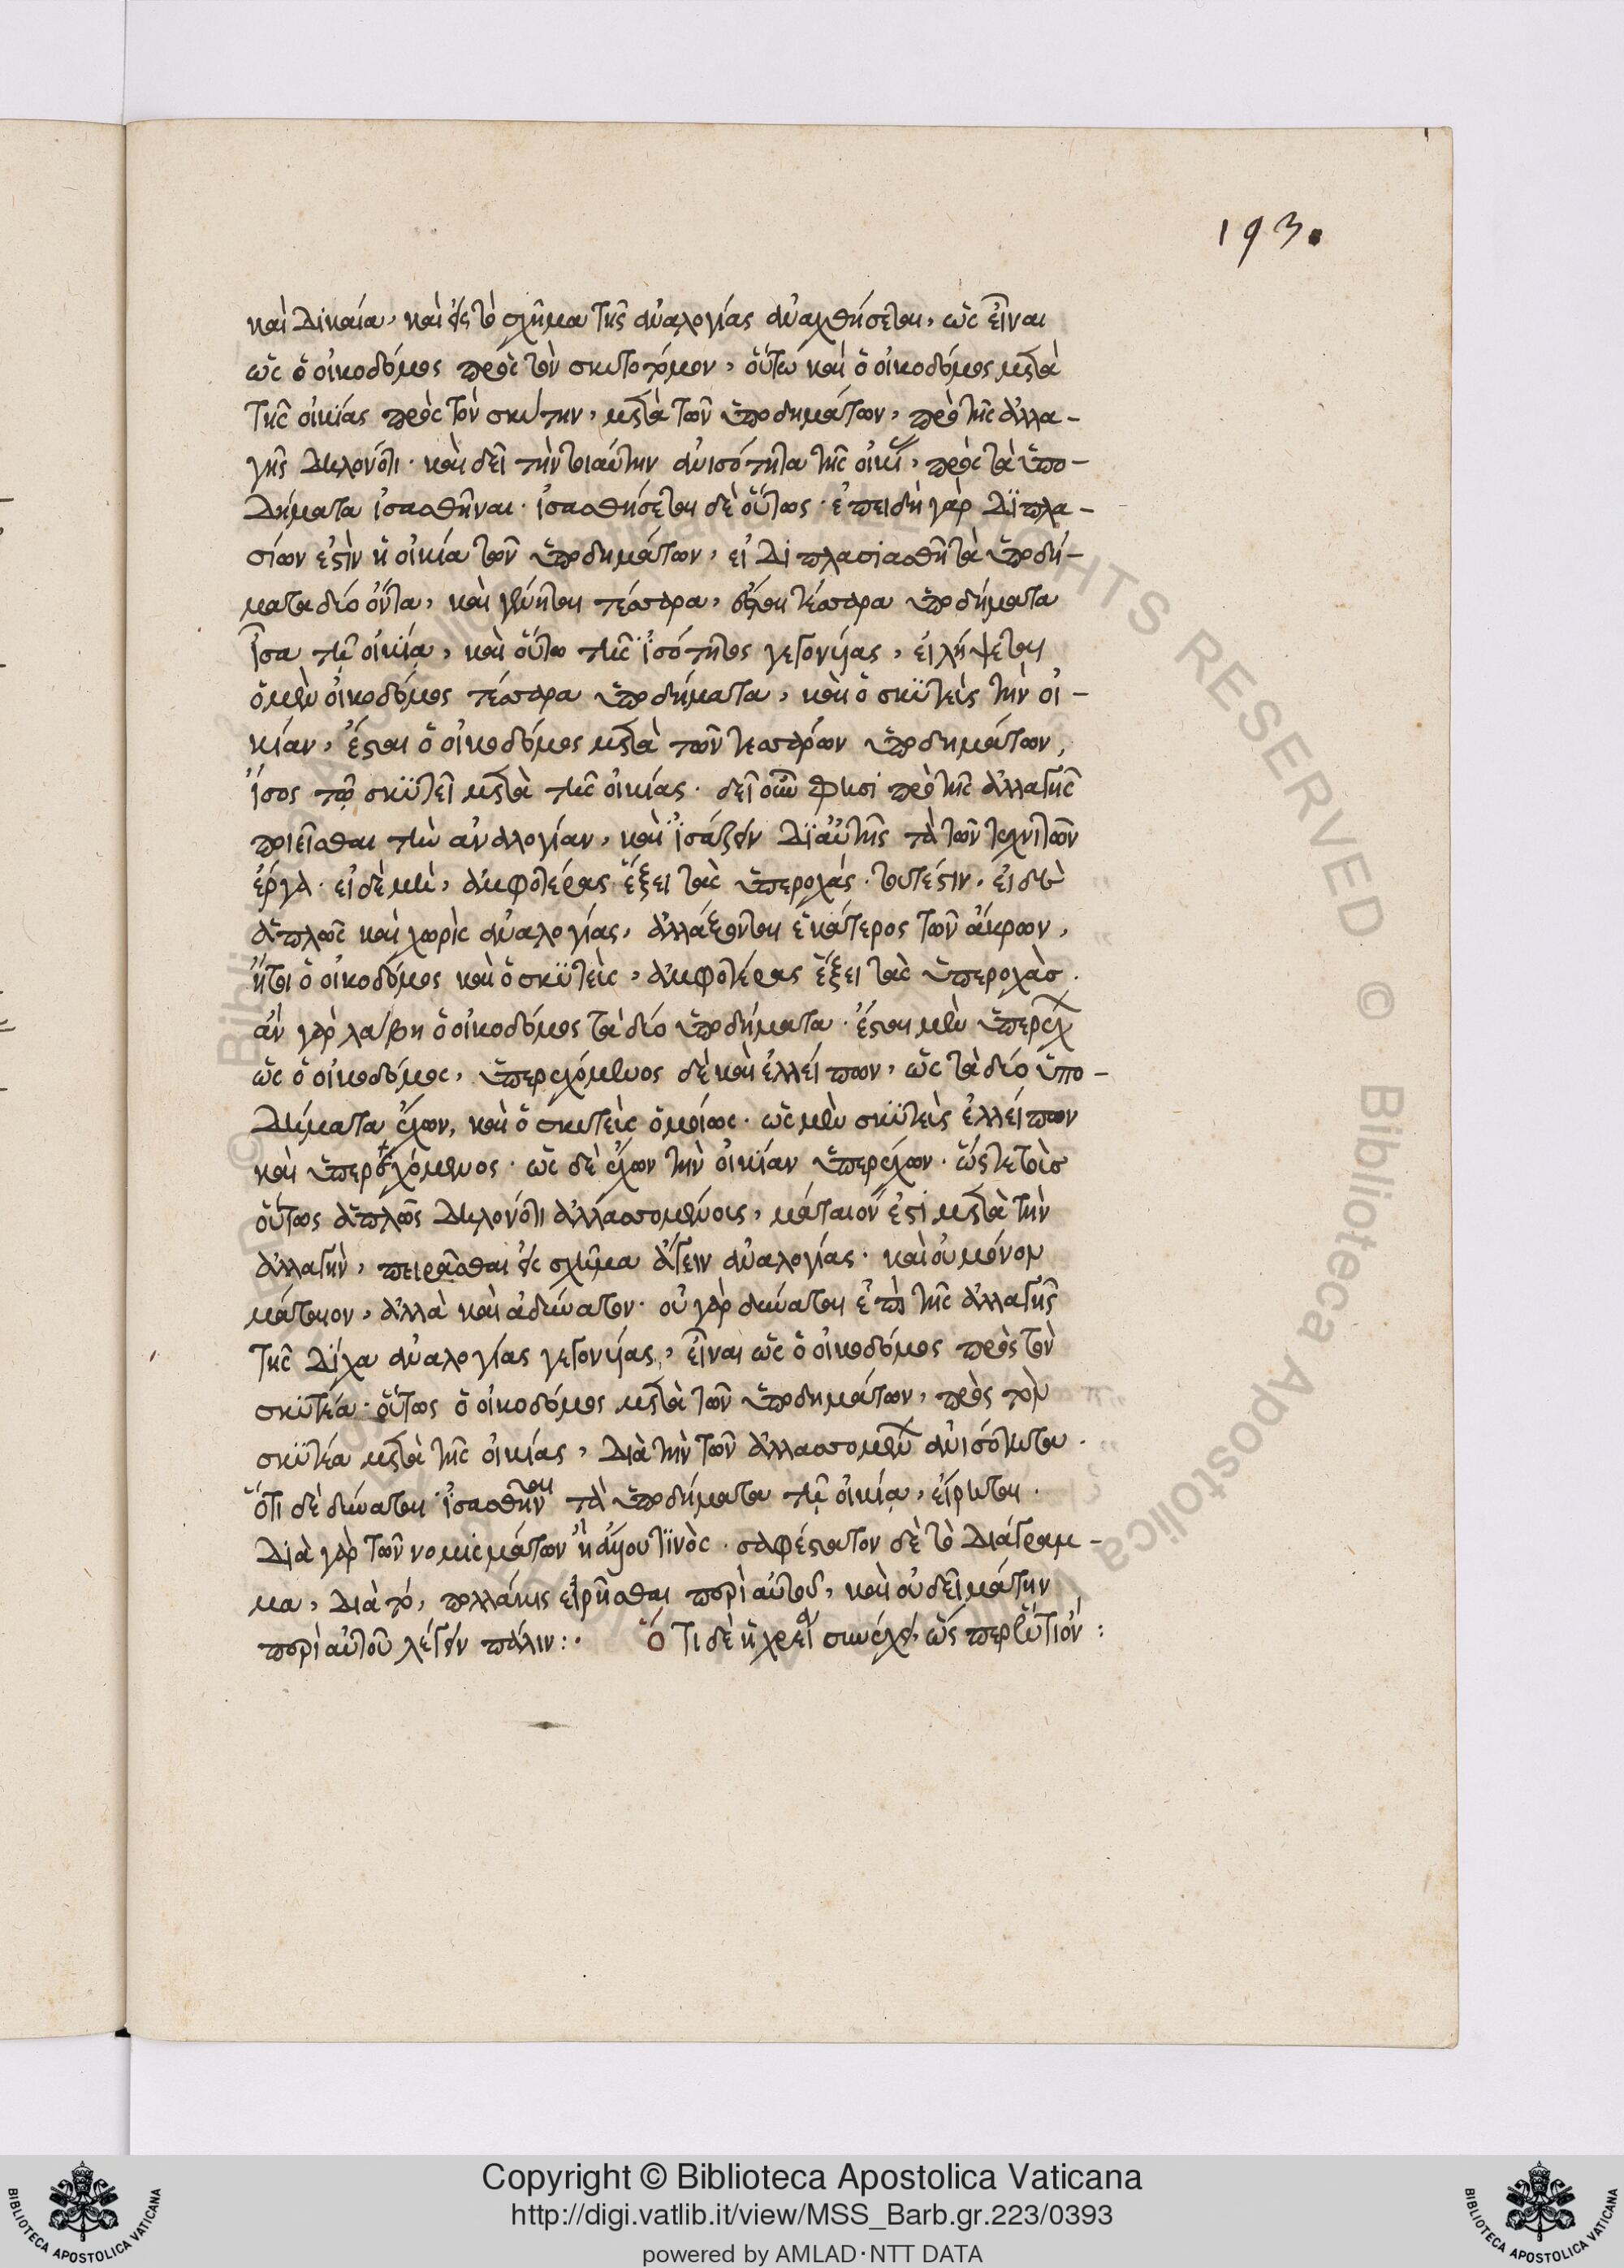 193.
καὶ δικαία, καὶ εἰς τὸ σχῆμα τῆς ἀναλογίας ἀναχθήσεται, ὡς εἶναι
ὡς ὁ οἰκοδόμος πρὸς τὸν σκυτοτόμον, οὕτω καὶ ὁ οἰκοδόμος μετὰ
τῆς οἰκίας πρὸς τὸν σκύτην, μετὰ τῶν ὑποδημάτων, πρὸ τῆς ἀλλα-
γῆς δηλονότι. καὶ δεῖ τὴν τοιαύτην ἀνισότητα τῆς οἰκί, πρὸς τὰ ὑπο-
δήματα ἰσασθῆναι. ἰσασθήσεται δὲ οὕτως. ἐπειδὴ γὰρ διπλα-
σίων ἐστὶν ἡ οἰκία τῶν ὑποδημάτων, εἰ διπλασιασθῆ τὰ ὑποδή-
ματα δύο ὄντα, καὶ γένηται τέσσαρα, ἔσται τέσσαρα ὑποδήματα
ἶσα τῆ οἰκία, καὶ οὕτω τῆς ἰσότητος γεγονυίας, εἰλήψεται
ὁ μὲν οἰκοδόμος τέσσαρα ὑποδήματα, καὶ ὁ σκυτεὺς τὴν οἰ-
κίαν, ἔσται ὁ οἰκοδόμος μετὰ τῶν τεσσάρων ὑποδημάτων,
ἴσος τῷ σκυτεῖ μετὰ τῆς οἰκίας. δεῖ οὖν φησι πρὸ τῆς ἀλλαγῆς
ποιεῖσθαι τὴν ἀναλογίαν, καὶ ἰσάζειν δι αὐτῆς τὰ τῶν τεχνιτῶν
ἔργα. εἰ δὲ μὴ, ἀμφοτέρας ἕξει τὰς ὑπεροχάς. τουτέστιν. εἰ δὲ μὴ
ἁπλῶς καὶ χωρὶς ἀναλογίας, ἀλλάξονται ἑκάτερος τῶν ἄκρων,
ἤτοι ὁ οἰκοδόμος καὶ ὁ σκυτεὺς, ἀμφοτέρας ἕξει τὰς ὑπεροχὰσ.
ἀν γὰρ λάβη ὁ οἰκοδόμος τὰ δύο ὑποδήματα. ἔσται μὲν ὑπερέχ
ὡς ὁ οἰκοδόμος, ὑπερεχόμενος δὲ καὶ ἐλλείπων, ὡς τὰ δύο ὑπο-
δήματα ἔχων, καὶ ὁ σκυτεὺς ὁμοίως. ὡς μὲν σκυτεὺς ἐλλείπων
καὶ ὑπερεχόμενος. ὡς δὲ ἔχων τὴν οἰκίαν ὑπερέχων. ὥστε τοὶσ
οὕτως ἁπλῶς δηλονότι ἀλλασσομένοις, μάταιον ἐστὶ μετὰ τὴν
ἀλλαγὴν, πειρᾶσθαι εἰς σχῆμα ἄγειν ἀναλογίας. καὶ οὐ μόνον
μάταιον, ἀλλὰ καὶ ἀδύνατον. οὐ γὰρ δύναται ἐπὶ τῆς ἀλλαγῆς
τῆς δίχα ἀναλογίας γεγονυίας, εἶναι ὡς ὁ οἰκοδόμος πρὸς τὸν
σκυτέα. οὕτως ὁ οἰκοδόμος μετὰ τῶν ὑποδημάτων, πρὸς τὸν
σκυτέα μετὰ τῆς οἰκίας, διὰ τὴν τῶν ἀλλασσομένων ἀνισότητα.
ὅτι δὲ δύναται ἰσασθῆναι τὰ ὑποδήματα τῆ οἰκία, εἴρηται.
διὰ γὰρ τῶν νομισμάτων ἢ ἄλλου τινὸς. σαφέστατον δὲ τὸ διάγραμ-
μα, διὰ τό, πολλάκις εἰρῆσθαι περὶ αὐτοῦ, καὶ οὐ δεῖ μάτην
περὶ αὐτοῦ λέγειν πάλιν:. Ὅτι δὲ ἡ χρεία συνέχει, ὥσπερ ἕν τι ὄν:
Copyright © Biblioteca Apostolica Vaticana
http://digi.vatlib.it/view/MSS_Barb.gr.223/0393
powered by AMLAD·NTT DATA